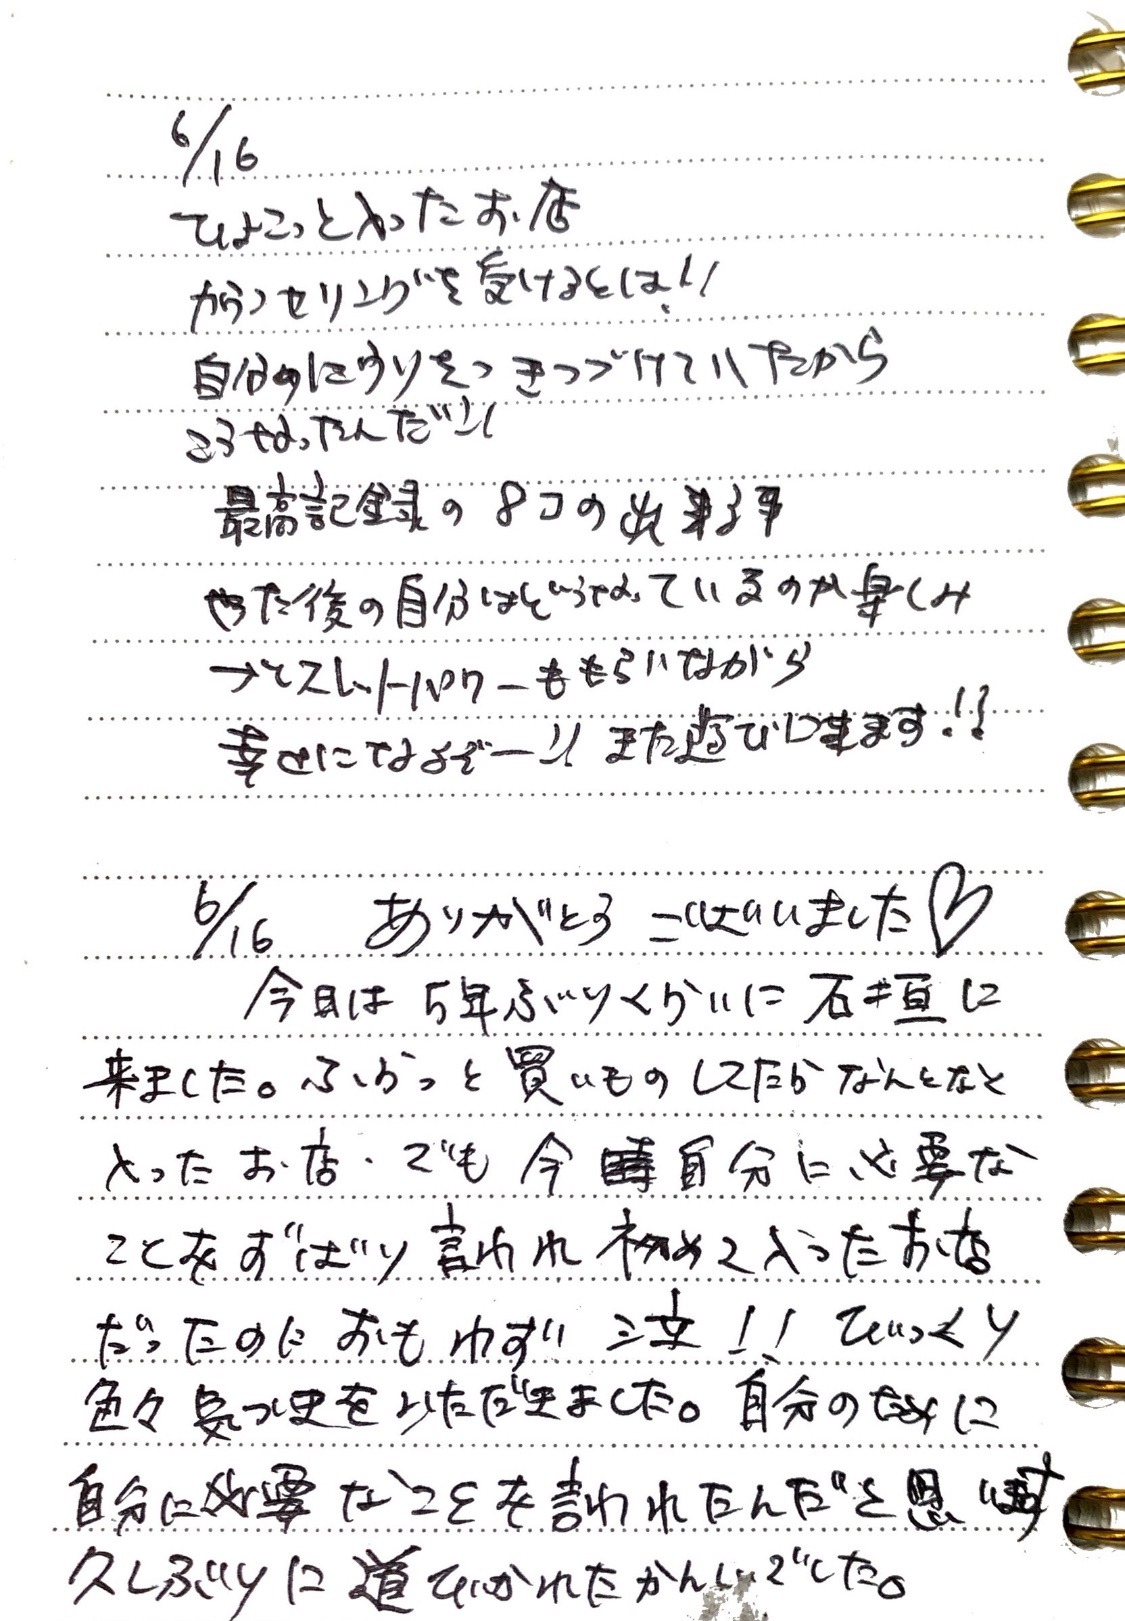 6/16
ひょこっと入ったお店
カウンセリングを受けるとは!!
自分のにウソをつきつづけていたから
こうなったんだ!!
最高記録の8コの出来る事
やった後の自分はどうなっているのか楽しみ
→とスレットパワーももらいながら
幸せになるぞー!! また遊びに来ます!!
6/16 ありがとうございました♡
今日は5年ぶりくらいに石垣に
来ました。ふらっと買いものしてたらなんとなく
入ったお店・でも今時自分に必要な
ことをずばり言われ初めて入ったお店
だったのにおもわず泣!! びっくり
色々気づきをいただきました。自分のために
自分に必要なことを言われたんだと思います
久しぶりに道びかれたかんじでした。